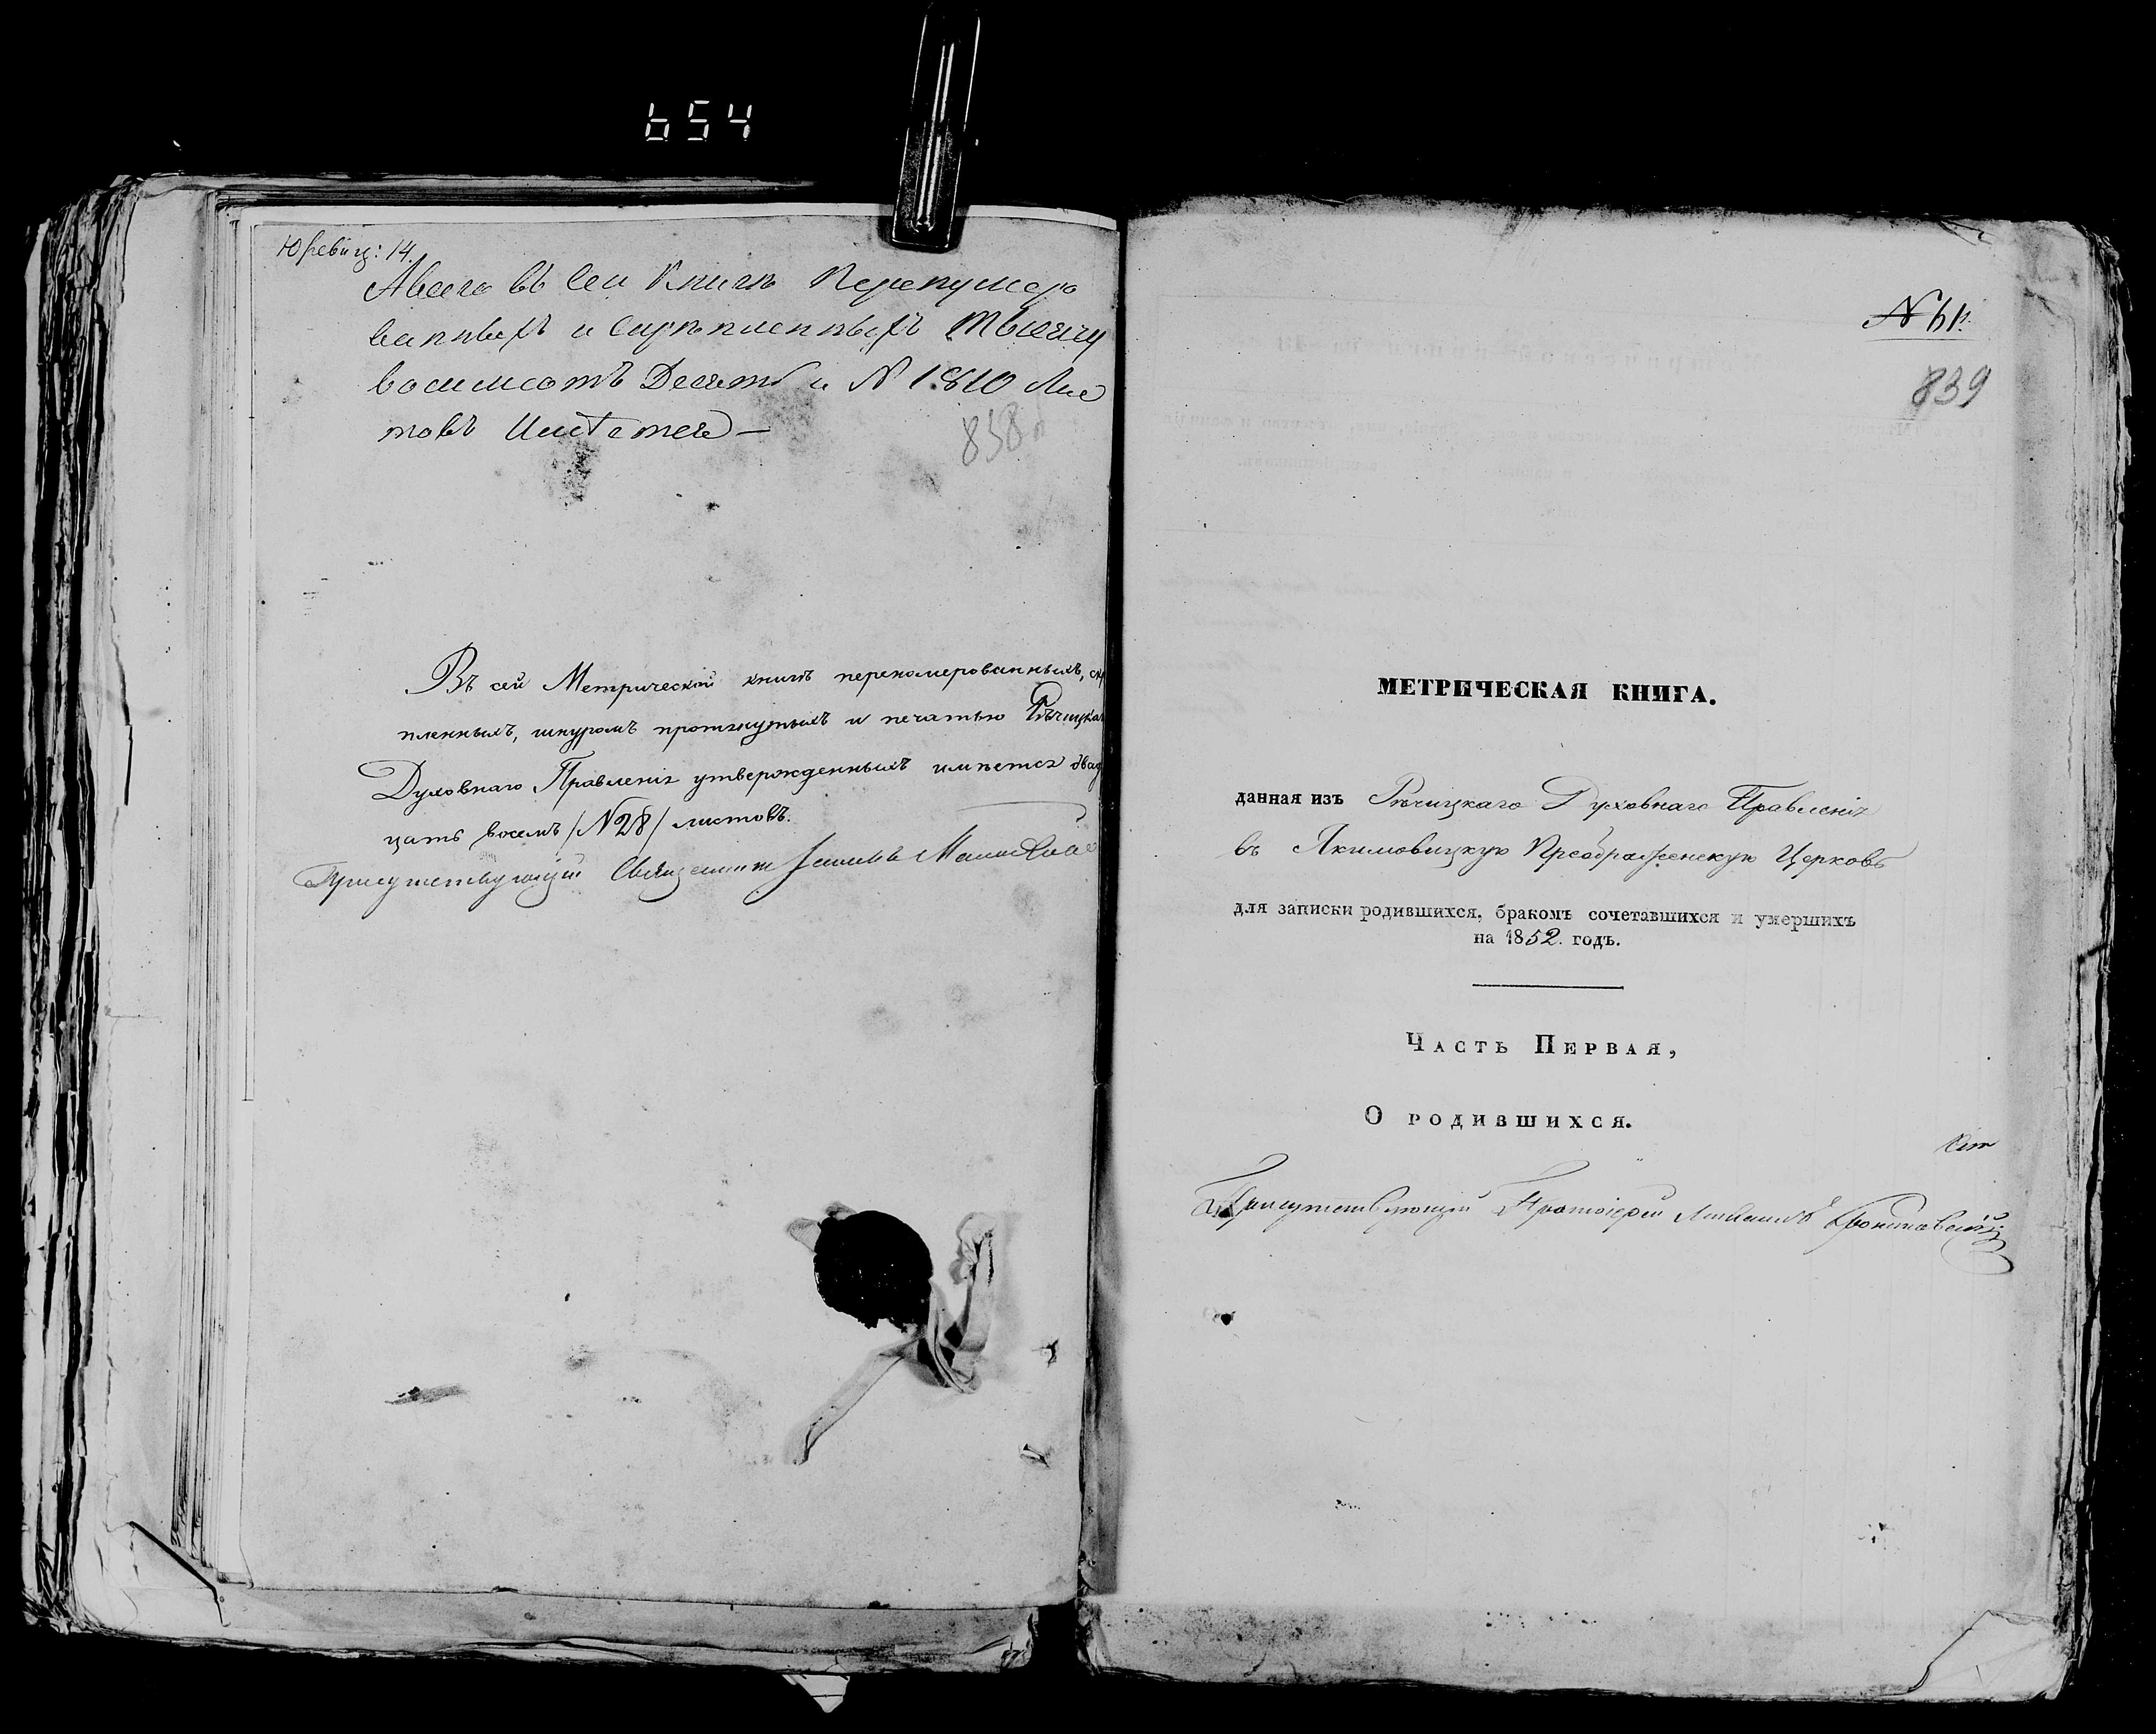 654
Юревич: 14.
А всего въ сей Книгѣ Перенумеро
ванныхъ и скрѣпленныхъ тысячу
восимсотъ Десять и N 1810 Лис
товъ Имѣется —
838
Въ сей Метрической книгѣ перенумерованныхъ, скр
пленныхъ, шнуромъ протянутыхъ и печатью Рѣчицка
Духовнаго Правленія утвержденныхъ имѣется двад
цать восемь /N 28/ листовъ.
Присутствующій Священникъ
N 61.
839
МЕТРИЧЕСКАЯ КНИГА.
данная изъ Рѣчицкаго Духовнаго Правленія
въ Якимовицкую Преображенскую Церковь
для записки родившихся, бракомъ сочетавшихся и умершихъ
на 1852. годъ.
Часть Первая,
О родившихся.
Присутствующій Протоіерей